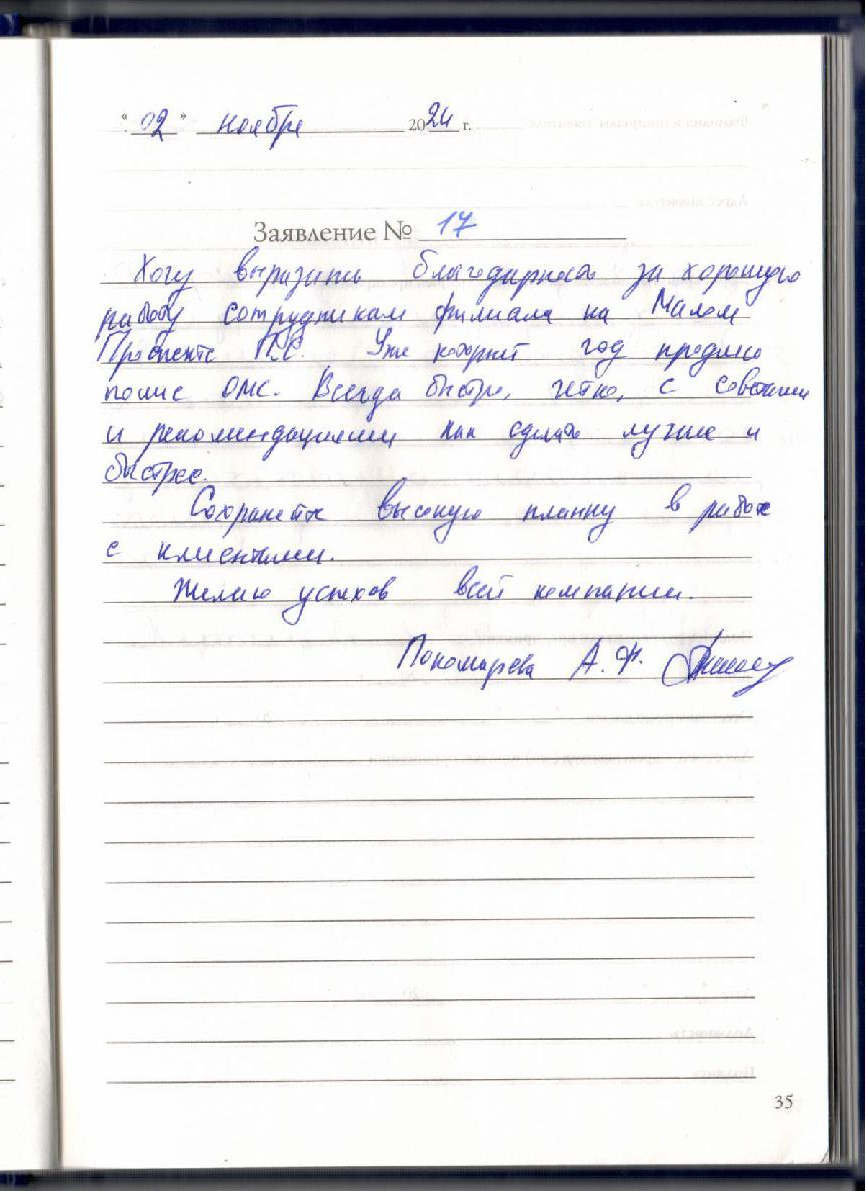 "02" ноября 2024 г.
Заявление № 17
Хочу выразить благодарность за хорошую
работу сотрудникам филиала на Малом
Проспекте П.С. Уже который год продлеваю
полис ОМС. Всегда быстро, четко, с советами
и рекомендациями как сделать лучше и
быстрее.
Сохраняйте высокую планку в работе
с клиентами.
Желаю успехов всей компании.
Пономарева А.Ф.
35